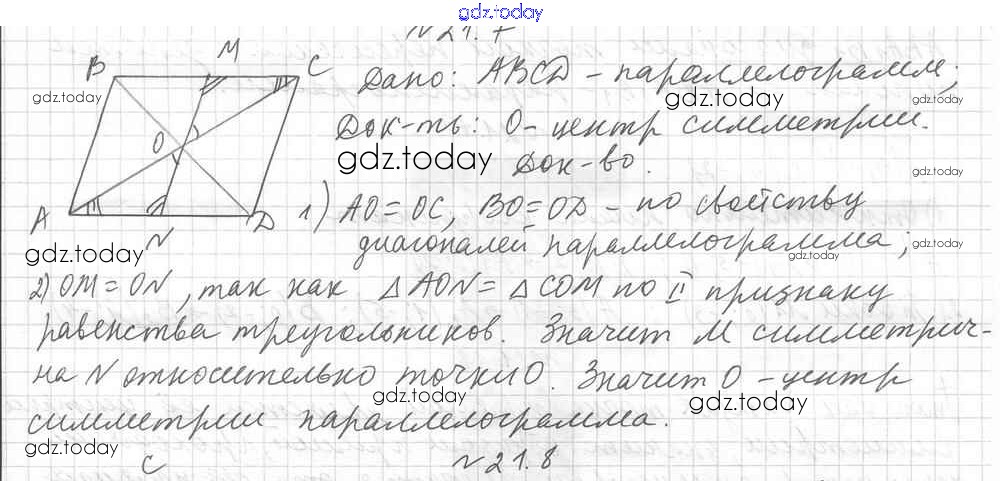 gdz.today
№21.7
B M C
Дано: ABCD - параллелограмм;
gdz.today gdz.today gdz.today
Док-ть: O - центр симметрии.
O
gdz.today
Док-во.
gdz.today
A N D
1) AO = OC, BO = OD - по свойству
gdz.today
диагоналей параллелограмма;
gdz.today gdz.today
2) OM = ON, так как △AON = △COM по II признаку
равенства треугольников. Значит M симметрич-
gdz.today
на N относительно точки O. Значит O - центр
gdz.today gdz.today
симметрии параллелограмма.
gdz.today
C №21.8